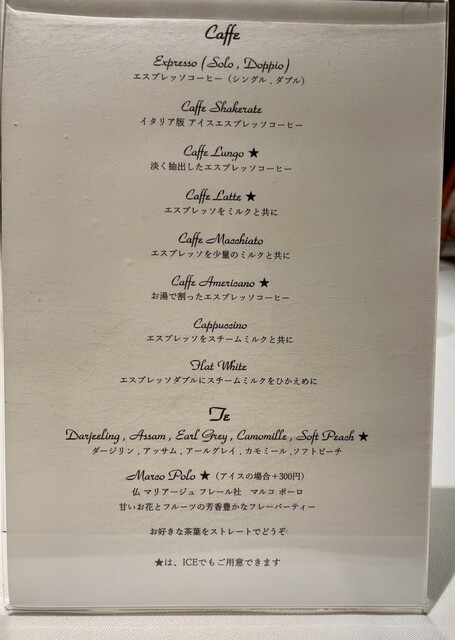 Caffe
Expresso (Solo , Doppio)
エスプレッソコーヒー（シングル , ダブル）
Caffe Shakerate
イタリア版 アイスエスプレッソコーヒー
Caffe Lungo ★
淡く抽出したエスプレッソコーヒー
Caffe Latte ★
エスプレッソをミルクと共に
Caffe Macchiato
エスプレッソを少量のミルクと共に
Caffe Americano ★
お湯で割ったエスプレッソコーヒー
Cappuccino
エスプレッソをスチームミルクと共に
Flat White
エスプレッソダブルにスチームミルクをひかえめに
Te
Darjeeling , Assam , Earl Grey , Camomille , Soft Peach ★
ダージリン , アッサム , アールグレイ , カモミール ,ソフトピーチ
Marco Polo ★（アイスの場合＋300円）
仏 マリアージュ フレール社　マルコ ポーロ
甘いお花とフルーツの芳香豊かなフレーバーティー
お好きな茶葉をストレートでどうぞ
★は、ICEでもご用意できます